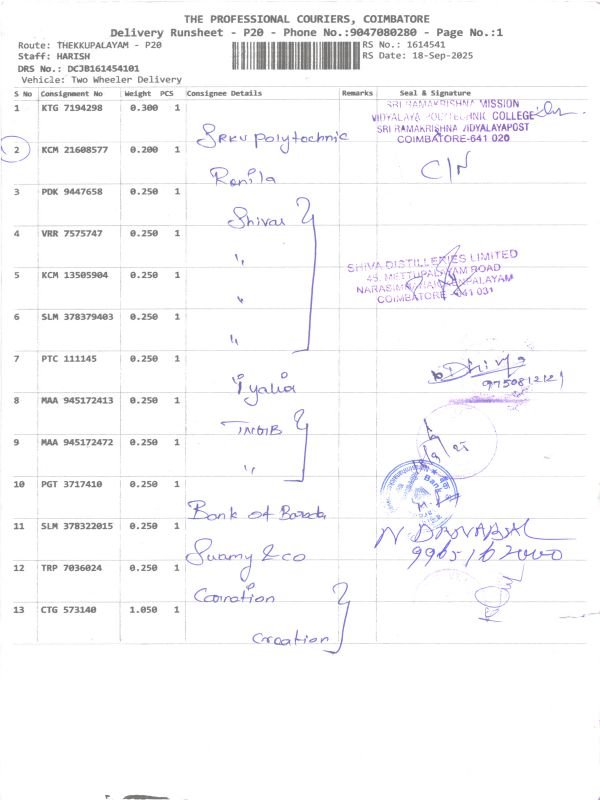 THE PROFESSIONAL COURIERS, COIMBATORE
Delivery Runsheet - P20 - Phone No.:9047080280 - Page No.:1
Route: THEKKUPALAYAM - P20
RS No.: 1614541
Staff: HARISH
RS Date: 18-Sep-2025
DRS No.: DCJB161454101
Vehicle: Two Wheeler Delivery
S No Consignment No Weight PCS Consignee Details Remarks Seal & Signature
1 KTG 7194298 0.300 1 SRKV Polytechnic
SRI RAMAKRISHNA MISSION
VIDYALAYA POLYTECHNIC COLLEGE
SRI RAMAKRISHNA VIDYALAYAPOST
COIMBATORE-641 020
2 KCM 21608577 0.200 1 C/N
3 PDK 9447658 0.250 1 Shivas
4 VRR 7575747 0.250 1 "
5 KCM 13505904 0.250 1 "
SHIVA DISTILLERIES LIMITED
45, METTUPALAYAM ROAD
COIMBATORE - 641 031
6 SLM 378379403 0.250 1 "
7 PTC 111145 0.250 1
8 MAA 945172413 0.250 1
9 MAA 945172472 0.250 1 "
10 PGT 3717410 0.250 1 Bank of Baroda
11 SLM 378322015 0.250 1 Swamy & co
12 TRP 7036024 0.250 1
13 CTG 573140 1.050 1 Creation